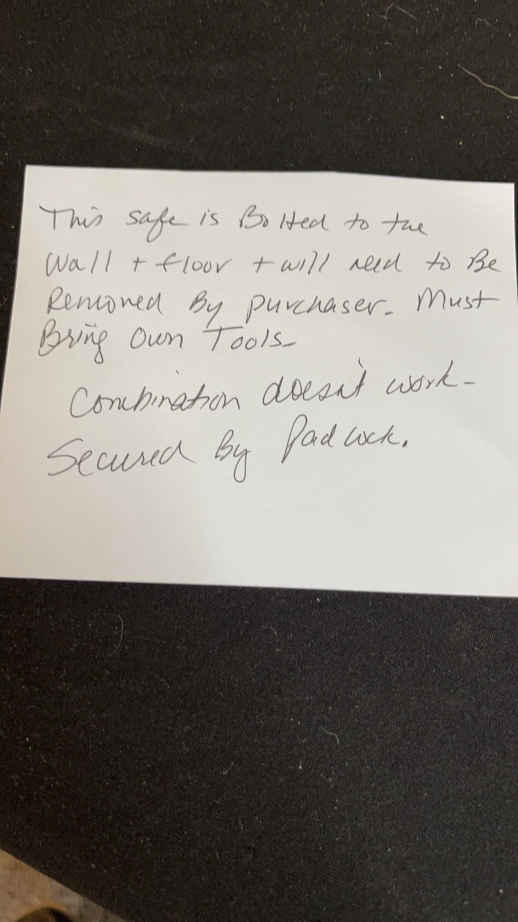 This safe is Bolted to the
Wall + floor + will need to Be
Removed By purchaser. Must
Bring Own Tools.
Combination doesn't work -
Secured By Padlock.